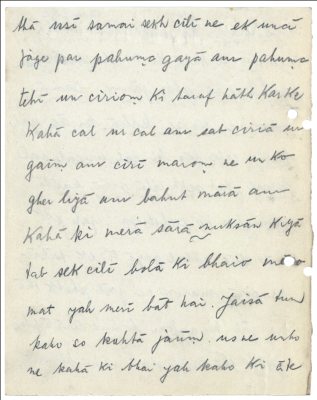 thā usī samai sekh cilī ne ek uncā
jāge par pahumc̣a gayā aur pahumc̣a
tehī un ciriom ki taraf hāth karke
kahā cal ur cal aur sat ciriā ur
gaim aur cirī marom ne un ko
gher liyā aur bahut mārā aur
kahā ki merā sārā nuksān kiyā
tab sek cilī bolā ki bhaio maro
mat yah merī bāt hai. Jaisā tum
kaho so kahtā jāūm. us ne unho
ne kahā ki bhai yah kaho ki āk